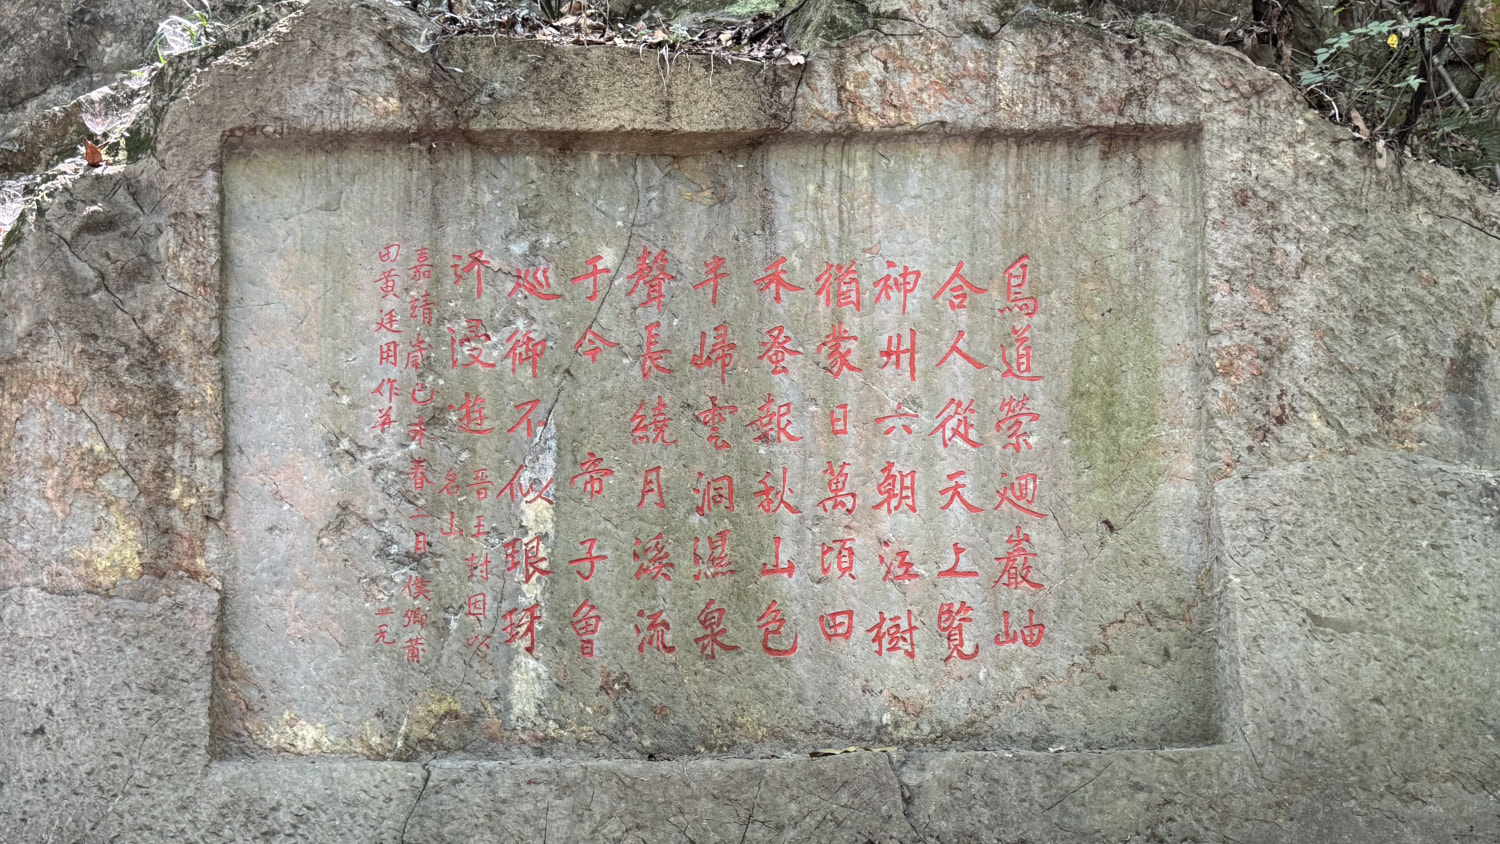 鳥道縈迴巖岫
合人從天上覽
神州六朝江樹
猶蒙日萬頃田
禾蚤報秋山色
半歸雲洞濕泉
聲長繞月溪流
于今帝子魯
巡御不似琅玡
汗漫遊 晉王封因以
名山
嘉靖歲己未春二日侯卿莆
田黃廷用作并